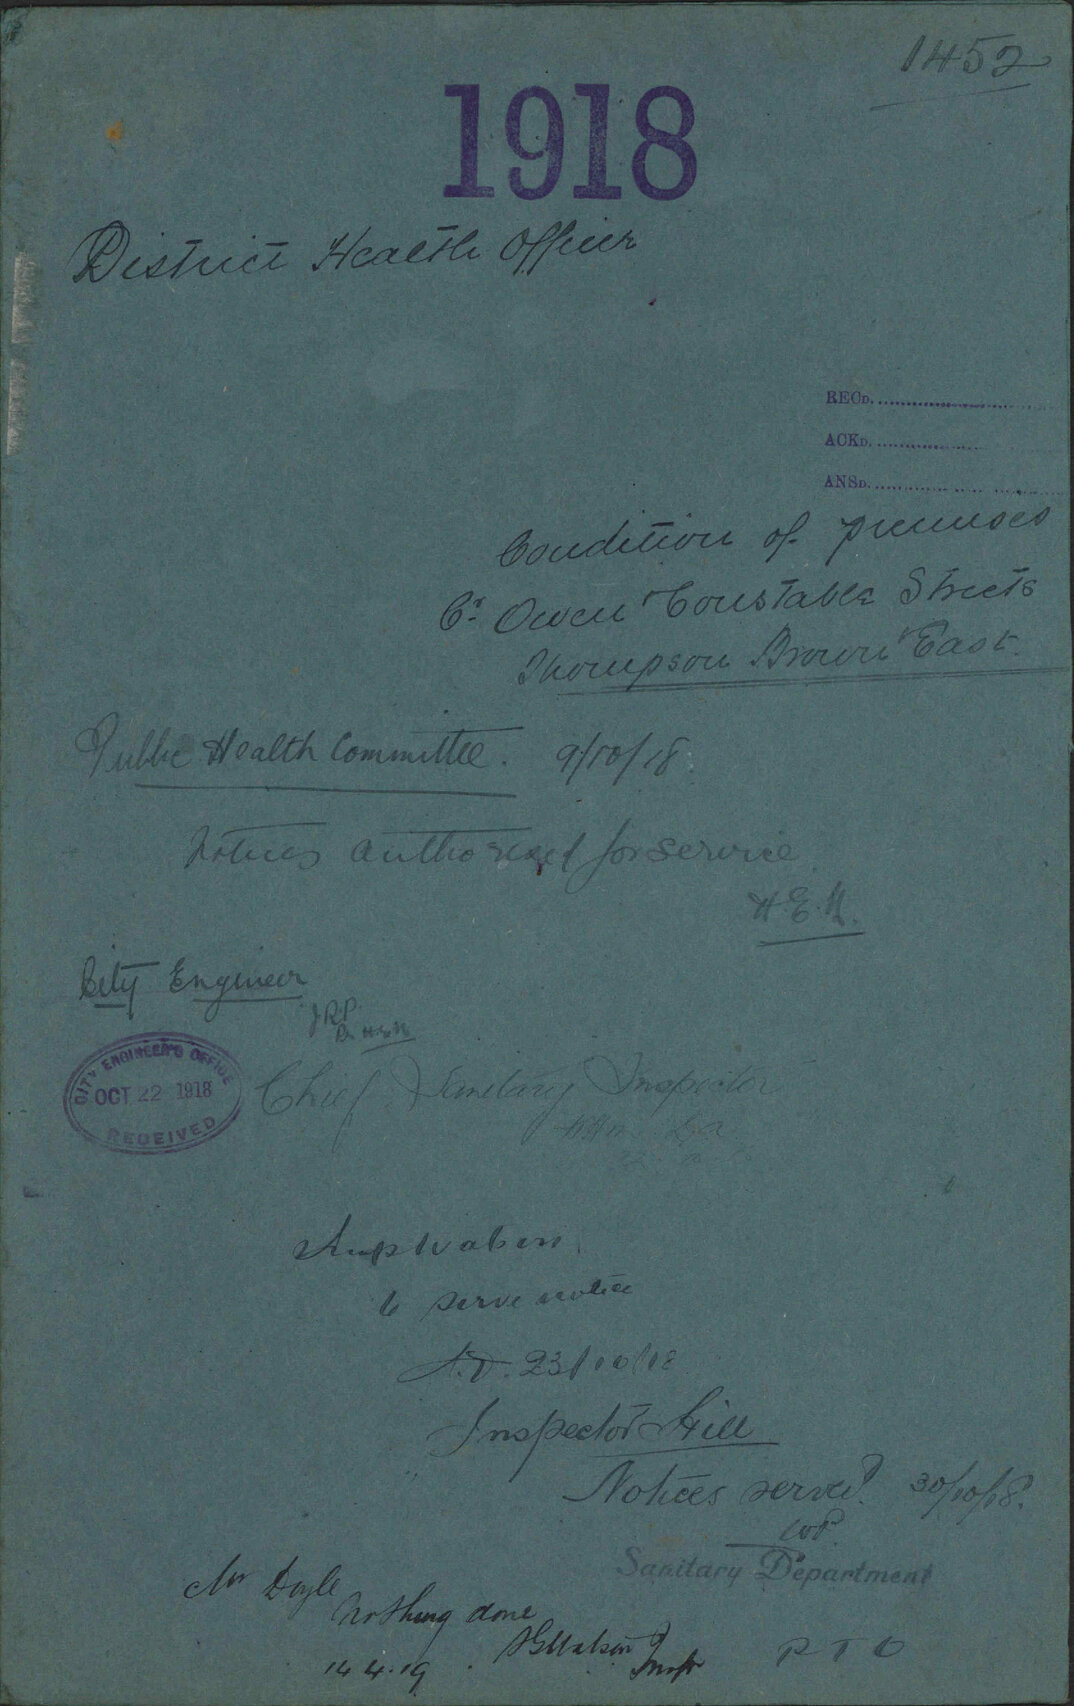 1452
1918
District Health Officer
RECD.
ACKD.
ANSD.
Condition of premises
Cr. Owen & Constable Streets
Thompson Brown East.
Public Health Committee. 9/10/18.
Notices authorised for service
H.E.N.
City Engineer
J.R.P.
CITY ENGINEER'S OFFICE
OCT 22 1918
RECEIVED
Chief Sanitary Inspector
Insp Watson
to serve notice
23/10/18
Inspector Gill
Notices served. 30/10/18.
Sanitary Department
Mr Doyle
Nothing done
Watson Inspr
14.4.19
P T O